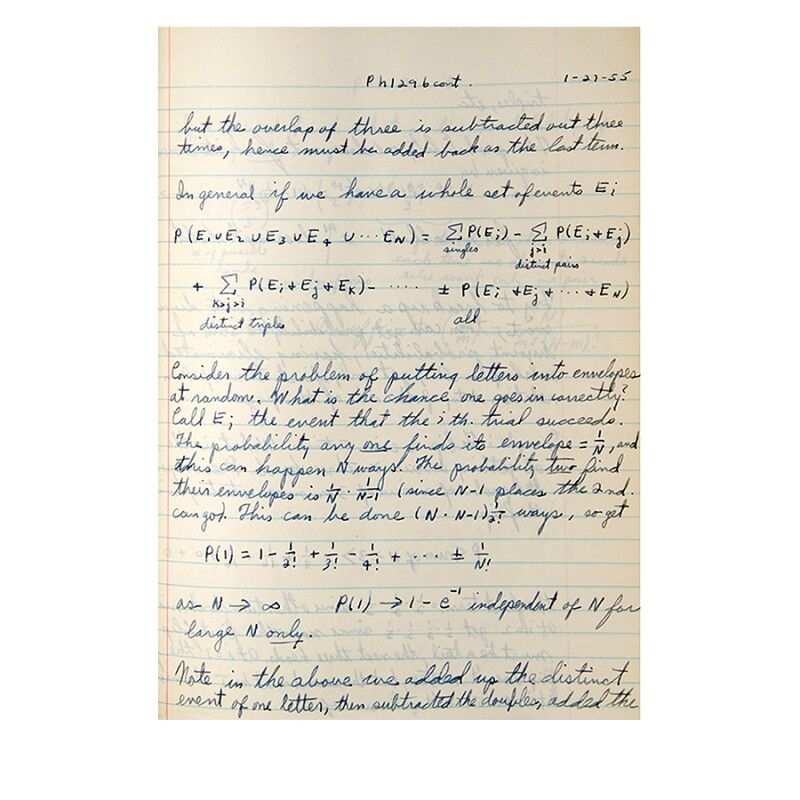 Ph129b cont.
1-27-55
but the overlap of three is subtracted out three
times, hence must be added back as the last term.
In general if we have a whole set of events Ei
P(E1∪E2∪E3∪E4 ∪ ··· EN) = ∑P(Ei) − ∑ P(Ei+Ej)
singles j>i
distinct pairs
+ ∑ P(Ei+Ej+EK) − ···· ± P(Ei+Ej+ ··· +EN)
K>j>i
distinct triples all
Consider the problem of putting letters into envelopes
at random. What is the chance one goes in correctly?
Call Ei the event that the ith. trial succeeds.
The probability any one finds its envelope = 1/N, and
this can happen N ways. The probability two find
their envelopes is 1/N · 1/N-1 (since N-1 places the 2nd.
can go). This can be done (N · N-1) 1/2! ways, so get
P(1) = 1 − 1/2! + 1/3! − 1/4! + ··· ± 1/N!
as N → ∞ P(1) → 1 − e⁻¹ independent of N for
large N only.
Note in the above we added up the distinct
event of one letter, then subtracted the doubles, added the